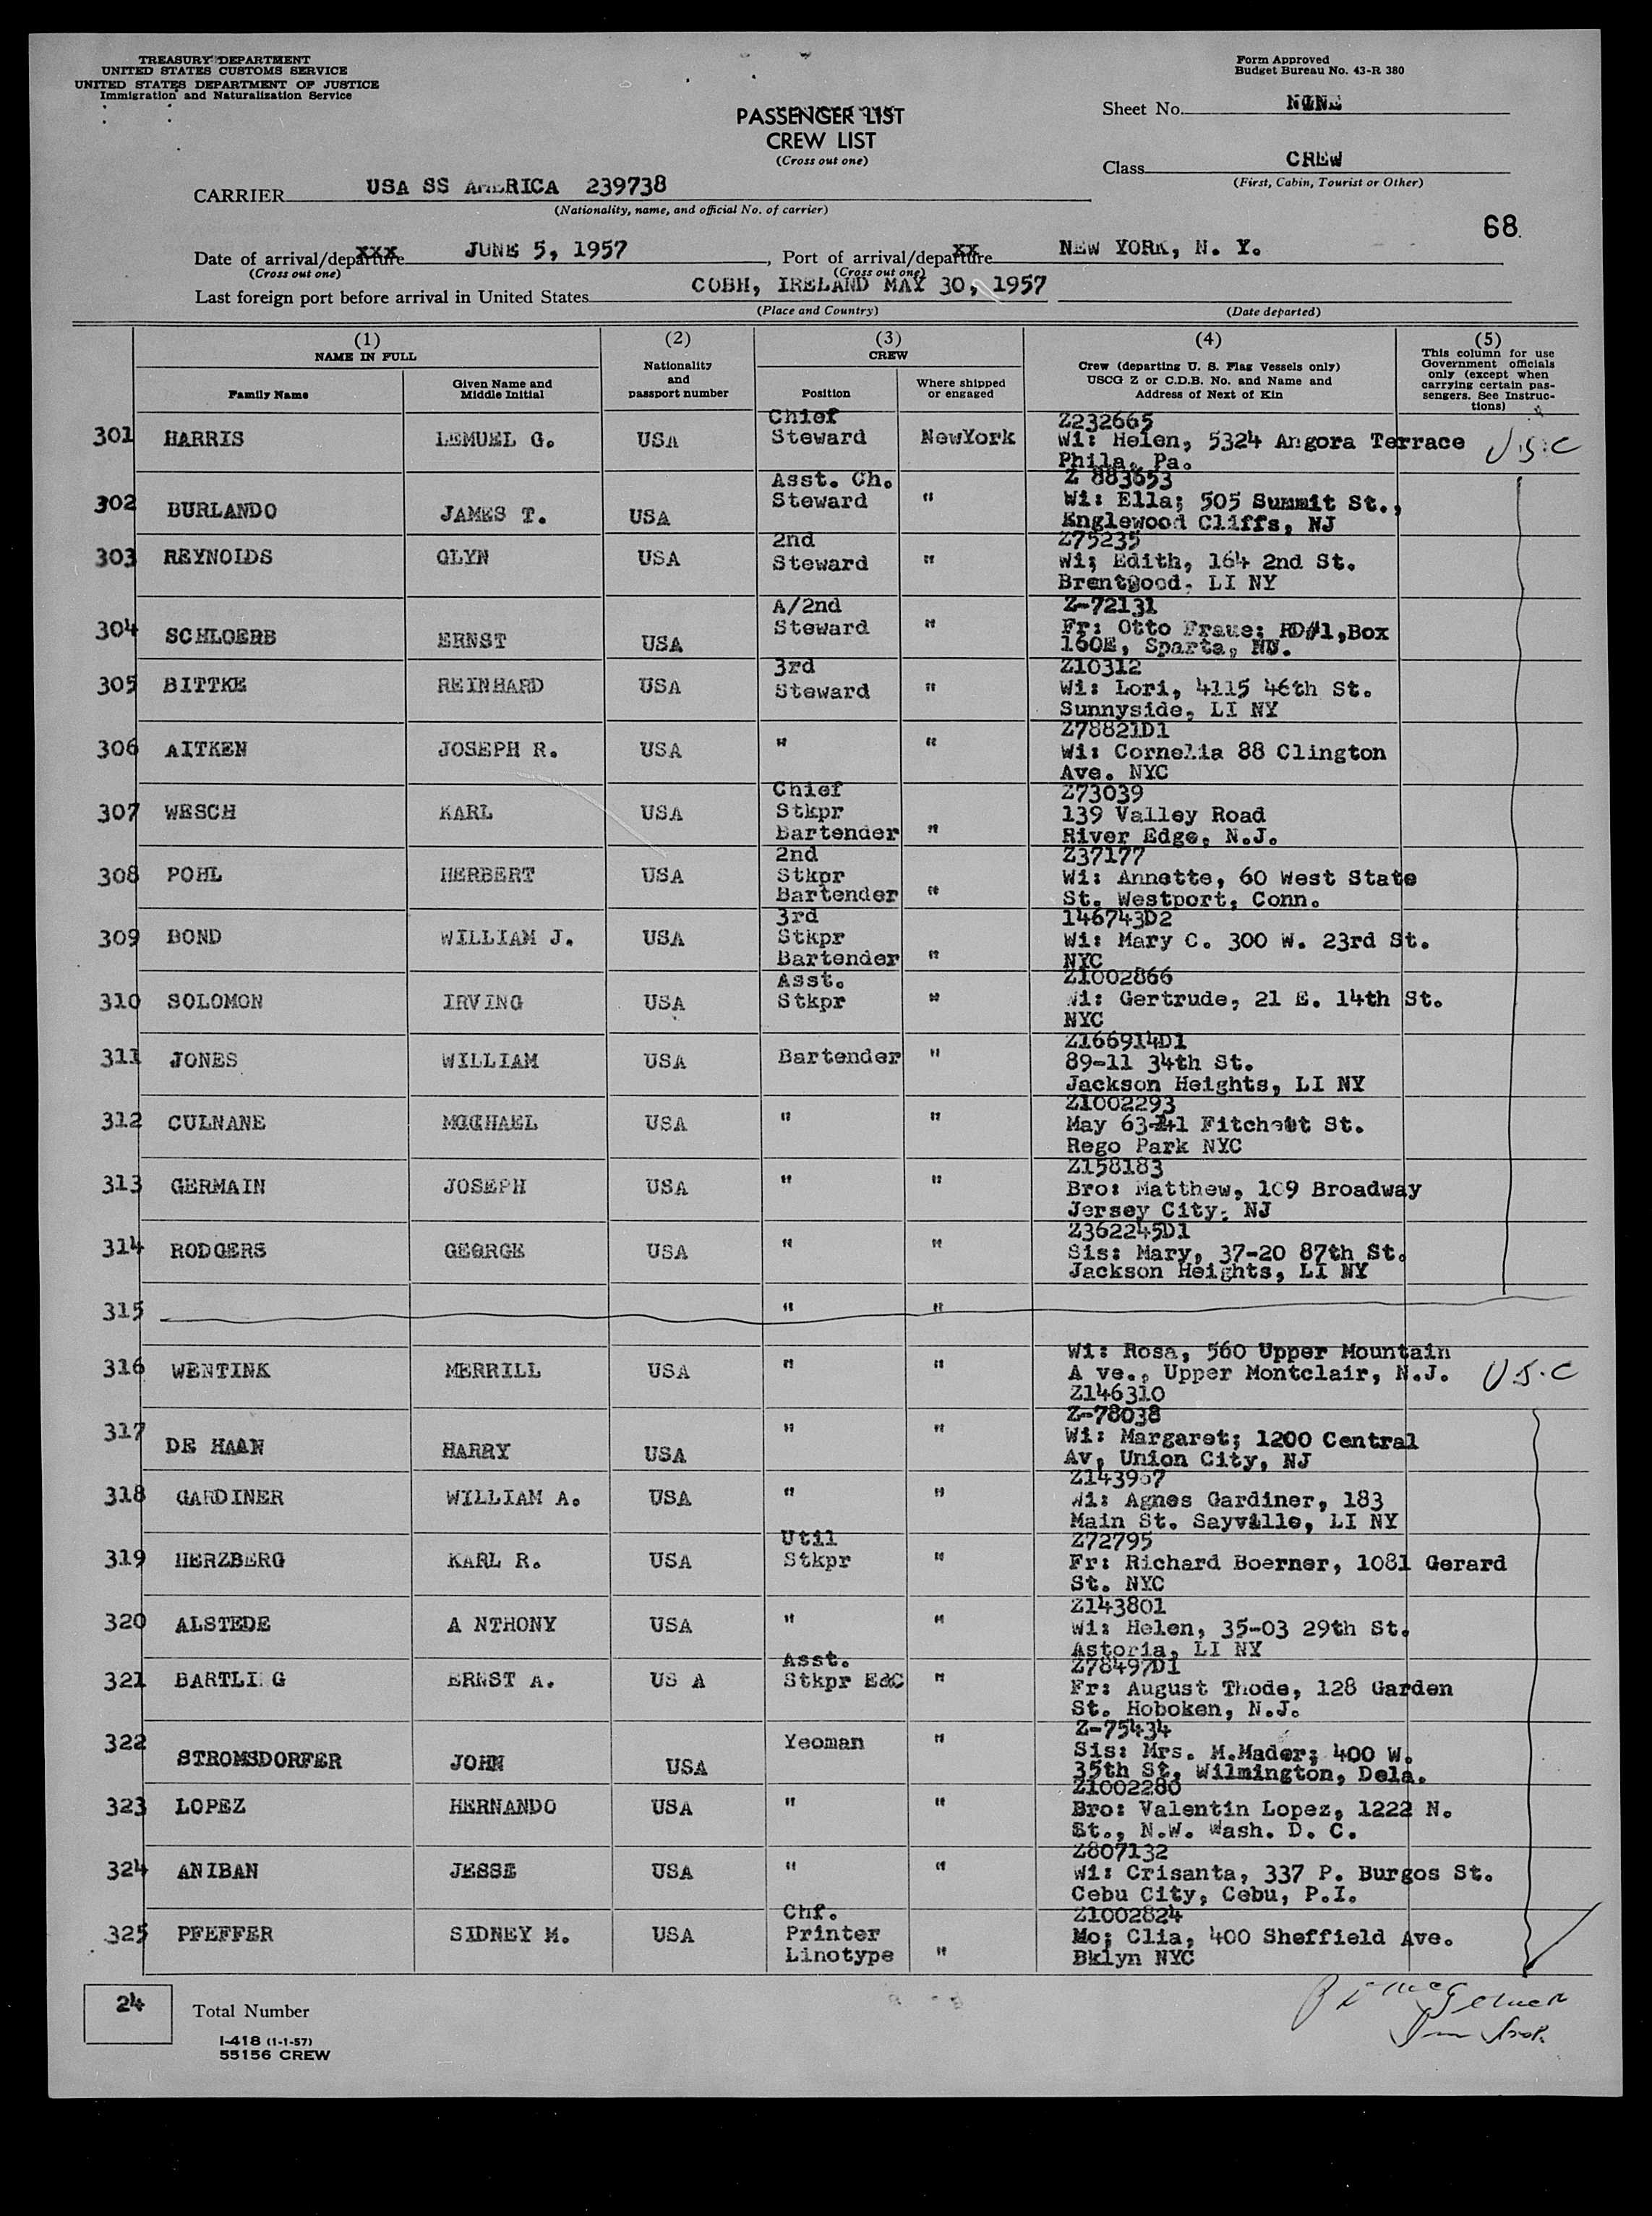 TREASURY DEPARTMENT
UNITED STATES CUSTOMS SERVICE
UNITED STATES DEPARTMENT OF JUSTICE
Immigration and Naturalization Service
Form Approved
Budget Bureau No. 43-R 380
PASSENGER LIST
CREW LIST
(Cross out one)
Sheet No. NONE
Class CREW
(First, Cabin, Tourist or Other)
CARRIER USA SS AMERICA 239738
(Nationality, name, and official No. of carrier)
68.
Date of arrival/departure JUNE 5, 1957, Port of arrival/departure NEW YORK, N. Y.
(Cross out one) (Cross out one)
Last foreign port before arrival in United States COBH, IRELAND MAY 30, 1957
(Place and Country) (Date departed)
(1) NAME IN FULL
Family Name
Given Name and Middle Initial
(2) Nationality and passport number
(3) CREW
Position
Where shipped or engaged
(4) Crew (departing U. S. Flag Vessels only) USCG Z or C.D.B. No. and Name and Address of Next of Kin
(5) This column for use Government officials only (except when carrying certain passengers. See Instructions)
301 HARRIS LEMUEL G. USA Chief Steward NewYork Z232665 Wi: Helen, 5324 Angora Terrace Phila, Pa. U.S.C
302 BURLANDO JAMES T. USA Asst. Ch. Steward " Z 883653 Wi: Ella; 505 Summit St., Englewood Cliffs, NJ
303 REYNOLDS GLYN USA 2nd Steward " Z75235 Wi; Edith, 164 2nd St. Brentwood, LI NY
304 SCHLOERB ERNST USA A/2nd Steward " Z-72131 Fr: Otto Fraus; RD#1,Box 160E, Sparta, NJ.
305 BITTKE REINHARD USA 3rd Steward " Z10312 Wi: Lori, 4115 46th St. Sunnyside, LI NY
306 AITKEN JOSEPH R. USA " " Z78821D1 Wi: Cornelia 88 Clington Ave. NYC
307 WESCH KARL USA Chief Stkpr Bartender " Z73039 139 Valley Road River Edge, N.J.
308 POHL HERBERT USA 2nd Stkpr Bartender " Z37177 Wi: Annette, 60 West State St. Westport, Conn.
309 BOND WILLIAM J. USA 3rd Stkpr Bartender " 146743D2 Wi: Mary C. 300 W. 23rd St. NYC
310 SOLOMON IRVING USA Asst. Stkpr " Z1002866 Wi: Gertrude, 21 E. 14th St. NYC
311 JONES WILLIAM USA Bartender " Z166914D1 89-11 34th St. Jackson Heights, LI NY
312 CULNANE MICHAEL USA " " Z1002293 May 63-41 Fitchett St. Rego Park NYC
313 GERMAIN JOSEPH USA " " Z158183 Bro: Matthew, 109 Broadway Jersey City, NJ
314 RODGERS GEORGE USA " " Z362245D1 Sis: Mary, 37-20 87th St. Jackson Heights, LI NY
315 " "
316 WENTINK MERRILL USA " " Wi: Rosa, 560 Upper Mountain A ve., Upper Montclair, N.J. Z146310 U.S.C
317 DE HAAN HARRY USA " " Z-78038 Wi: Margaret; 1200 Central Av, Union City, NJ
318 GARDINER WILLIAM A. USA " " Z143957 Wi: Agnes Gardiner, 183 Main St. Sayville, LI NY
319 HERZBERG KARL R. USA Util Stkpr " Z72795 Fr: Richard Boerner, 1081 Gerard St. NYC
320 ALSTEDE A NTHONY USA " " Z143801 Wi: Helen, 35-03 29th St. Astoria, LI NY
321 BARTLI G ERNST A. US A Asst. Stkpr E&C " Z78497D1 Fr: August Thode, 128 Garden St. Hoboken, N.J.
322 STROMSDORFER JOHN USA Yeoman " Z-75434 Sis: Mrs. M.Mader; 400 W. 35th St, Wilmington, Dela.
323 LOPEZ HERNANDO USA " " Z1002280 Bro: Valentin Lopez, 1222 N. St., N.W. Wash. D. C.
324 ANIBAN JESSE USA " " Z807132 Wi: Crisanta, 337 P. Burgos St. Cebu City, Cebu, P.I.
325 PFEFFER SIDNEY M. USA Chf. Printer Linotype " Z1002824 Mo; Clia, 400 Sheffield Ave. Bklyn NYC
24 Total Number
I-418 (1-1-57)
55156 CREW